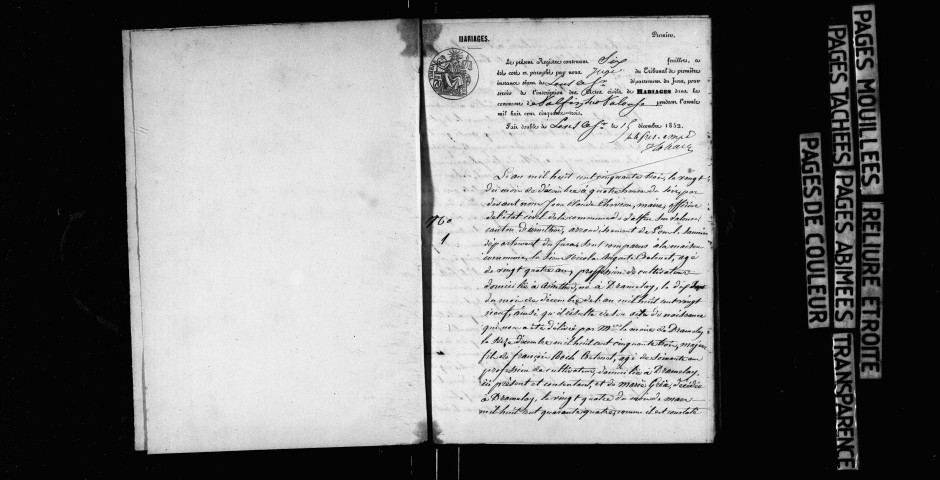 MARIAGES.
Premier,
Le présent Registre contenant Six feuillets, a
été coté et paraphé par nous Juge du Tribunal de première
instance séant de Lons le Sr. département du Jura, pour
servir de l'inscription des Actes civils de MARIAGES dans la
commune de Valfin sur Valouse pendant l'année
mil huit cent cinquante-trois.
Fait double à Lons le Sr. le 15 décembre 1852.
No
1.
L'an mil huit cent cinquante trois, le vingt
du mois de décembre à quatre heures du soir, par
devant nous Jean Claude maire, officier
de l'état civil de la commune de Valfin sur Valouse
canton d'arinthod, arrondissement de Lons le Saunier
département du Jura, sont comparus à la maison
commune, le sieur Nicolas Auguste âgé
de vingt quatre ans, profession de cultivateur
domicilié à arinthod, né à Dramelay, le dix
du mois de décembre de l'an mil huit cent vingt
neuf, ainsi qu'il résulte de l'acte de naissance
qui nous a été délivré par Mr. le maire de Dramelay
le décembre mil huit cent cinquante trois, majeur
fils de françois Roch agé de soixante ans
profession de cultivateur, domicilié à Dramelay,
ici présent et consentant, et de marie Gréa, décédée
à Dramelay, le vingt quatre du mois de mars
mil huit cent quarante quatre, comme il est constaté
PAGES MOUILLEES
PAGES TACHEES
PAGES DE COULEUR
PAGES ABIMEES
RELIURE ETROITE
TRANSPARENCE